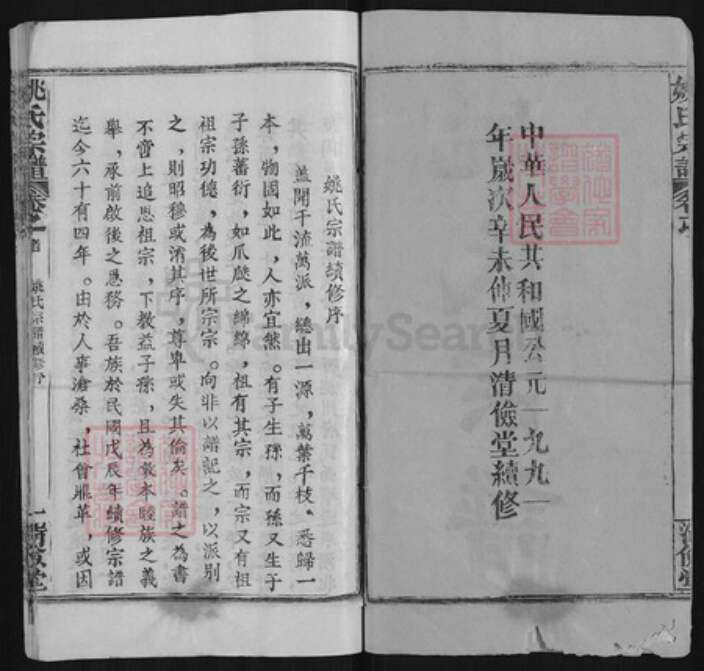 姚氏宗譜
中華人民共和國公元一九九一
年歲次辛未仲夏月清儉堂續修
清儉堂
姚氏宗譜續修序
蓋聞千流萬派，總出一源，萬葉千枝。悉歸一
本，物固如此，人亦宜然。有子生孫，而孫又生于
子孫蕃衍，如爪瓞之綿綿，祖有其宗，而宗又有祖
祖宗功德，為後世所宗宗。向非以譜記之，以派別
之，則昭穆或淆其序，尊卑或失其倫矣。譜之為書
不啻上追思祖宗，下教益子孫，且為敦本睦族之義
舉，承前啟後之急務。吾族於民國戊辰年續修宗譜
迄今六十有四年。由於人事滄桑，社會雕革，或因
姚氏宗譜
姚氏宗譜續修序
一
清儉堂
FamilySearch